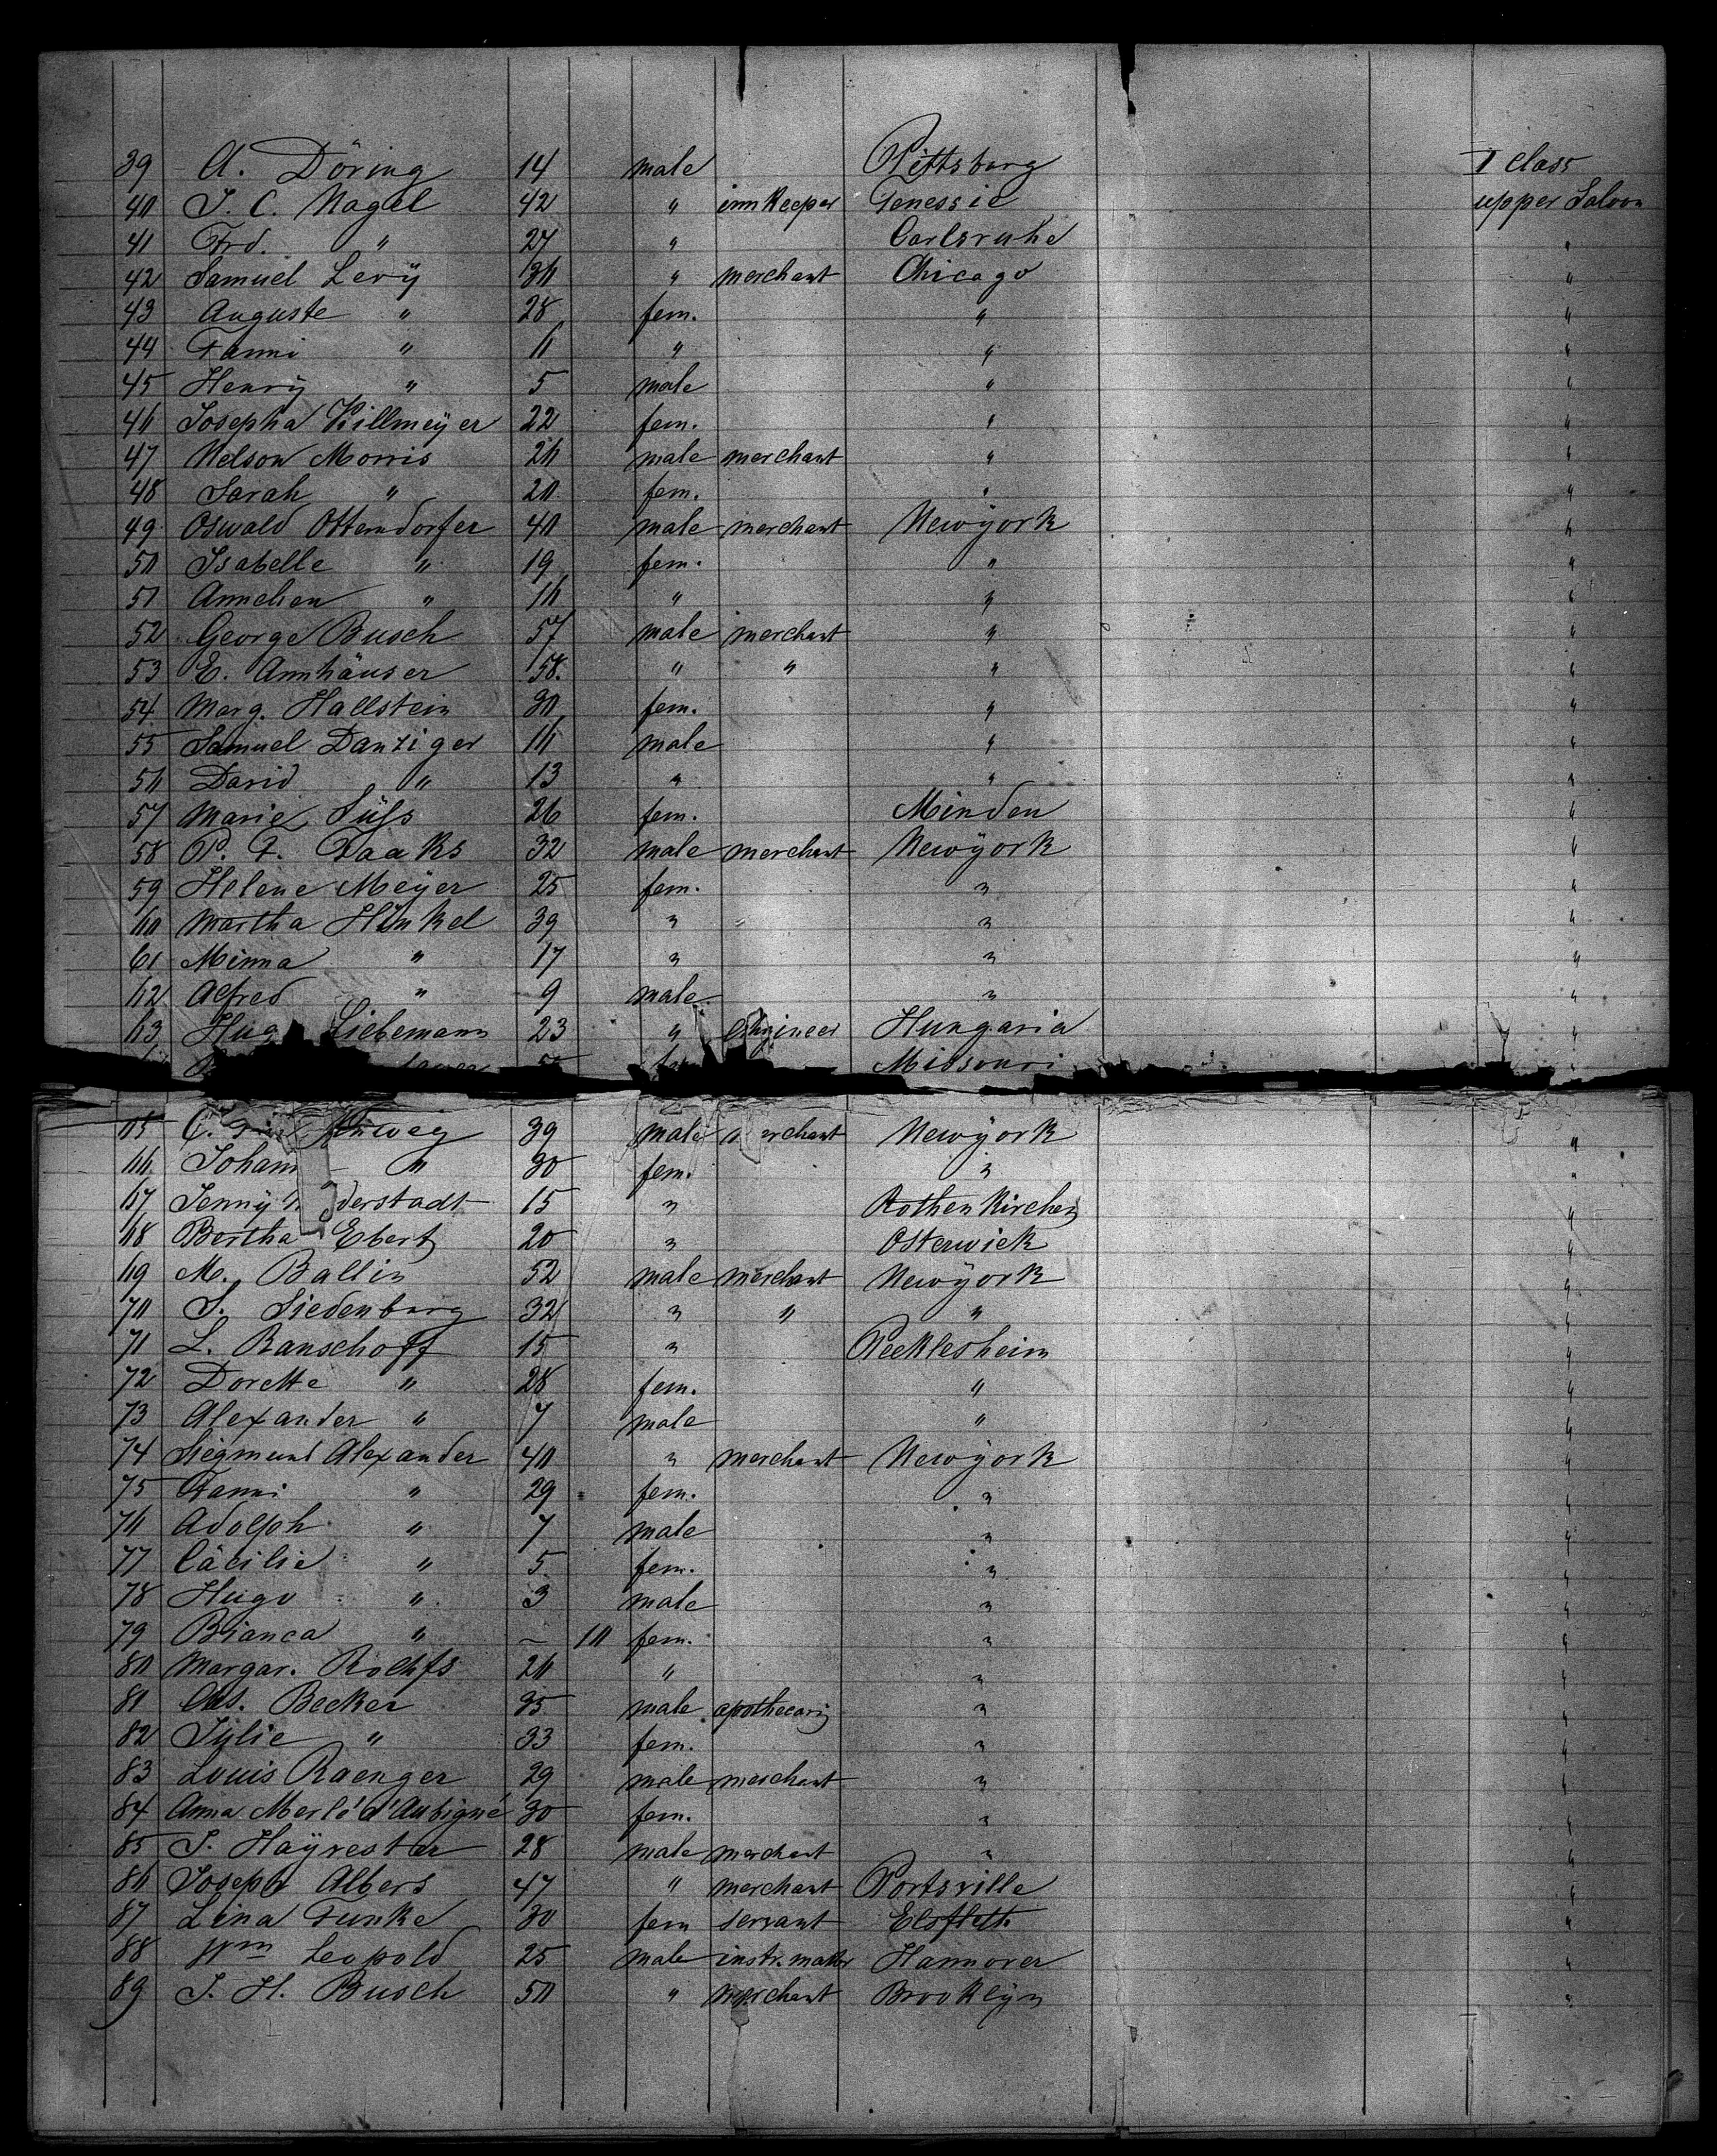 39 A. Döring 14 male Pittsburg I class
40 J. C. Nagel 42 " innkeeper Genessie upper Saloon
41 Frd. " 27 " Carlsruhe "
42 Samuel Levÿ 36 " merchant Chicago "
43 Auguste " 28 fem. " "
44 Fanni " 6 " " "
45 Henrÿ " 5 male " "
46 Josepha Killmeÿer 22 fem. " "
47 Nelson Morris 26 male merchant " "
48 Sarah " 20 fem. " "
49 Oswald Ottendorfer 40 male merchant Newÿork "
50 Isabelle " 19 fem. " "
51 Annchen " 16 " " "
52 George Busch 57 male merchant " "
53 E. Annhäuser 58. " " " "
54 Marg. Hallstein 30 fem. " "
55 Samuel Danziger 16 male " "
56 David " 13 " " "
57 Marie Süss 26 fem. Minden "
58 P. F. Faaks 32 male merchant Newÿork "
59 Helene Meÿer 25 fem. " "
60 Martha Hinkel 39 " " "
61 Minna " 17 " " "
62 Alfred " 9 male " "
63 Hug Liebemann 23 " engineer Hungaria "
Missouri
65 C. 39 male merchant Newÿork "
66 Johan " 30 fem. " "
67 Jennÿ derstadt 15 " Rothenkirchen "
68 Bertha Ebert 20 " Osterwick "
69 M. Ballin 52 male merchant Newÿork "
70 S. Siedenburg 32 " " " "
71 L. Ranschoff 15 " Pecklesheim "
72 Dorette " 28 fem. " "
73 Alexander " 7 male " "
74 Siegmund Alexander 40 " merchant Newÿork "
75 Fanni " 29 fem. " "
76 Adolph " 7 male " "
77 Cäcilie " 5 fem. " "
78 Hugo " 3 male " "
79 Bianca " – 10 fem. " "
80 Margar. Rohlfs 26 " " "
81 Chs. Becker 35 male apothecarÿ " "
82 Julie " 33 fem. " "
83 Louis Raenger 29 male merchant " "
84 Anna Merlé d'Aubigné 30 fem. " "
85 J. Haÿrester 28 male merchant " "
86 Joseph Albers 47 " merchant Portsville "
87 Lina Funke 30 fem servant Elsfleth "
88 Wm Leopold 25 male instr. maker Hannover "
89 J. H. Busch 50 " merchant Brooklÿn "